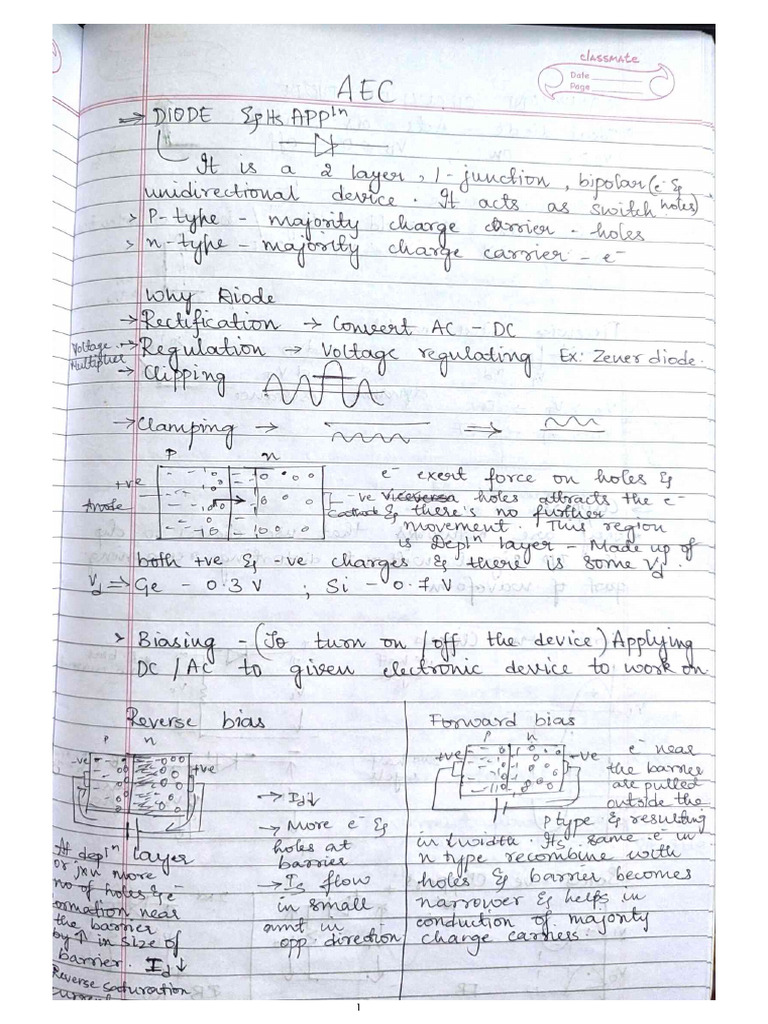 classmate
Date
Page
AEC
⇒ DIODE & Its APPlⁿ
It is a 2 layer, 1-junction, bipolar (e⁻ &
unidirectional device. It acts as switch. holes)
> P-type - majority charge carrier - holes
> n-type - majority charge carrier - e⁻
Why Diode
→ Rectification → Convert AC - DC
Voltage Multiplier
→ Regulation → Voltage regulating Ex: Zener diode.
→ Clipping
→ Clamping → ⇒
P n
+ve
Anode
-ve
Cathode
e⁻ exert force on holes &
viceversa holes attracts the e⁻
& there's no further
movement. This region
is Deplⁿ layer - Made up of
both +ve & -ve charges & there is some Vd.
Vd ⇒ Ge - 0.3 V ; Si - 0.7 V
> Biasing - (To turn on / off the device) Applying
DC / AC to given electronic device to work on
Reverse bias
P n
-ve +ve
→ Id↓
→ More e⁻ &
holes at
barrier
→ Is flow
in small
amt in
opp. direction
At deplⁿ layer
or jxn more
no of holes & e⁻
formation near
the barrier
by ↑ in size of
barrier. Id ↓
Reverse saturation
current
Forward bias
P n
+ve -ve
e⁻ near
the barrier
are pulled
outside the
p type & resulting
in ↓ width. Its same e⁻ in
n type recombine with
holes & barrier becomes
narrower & helps in
conduction of majority
charge carriers.
1